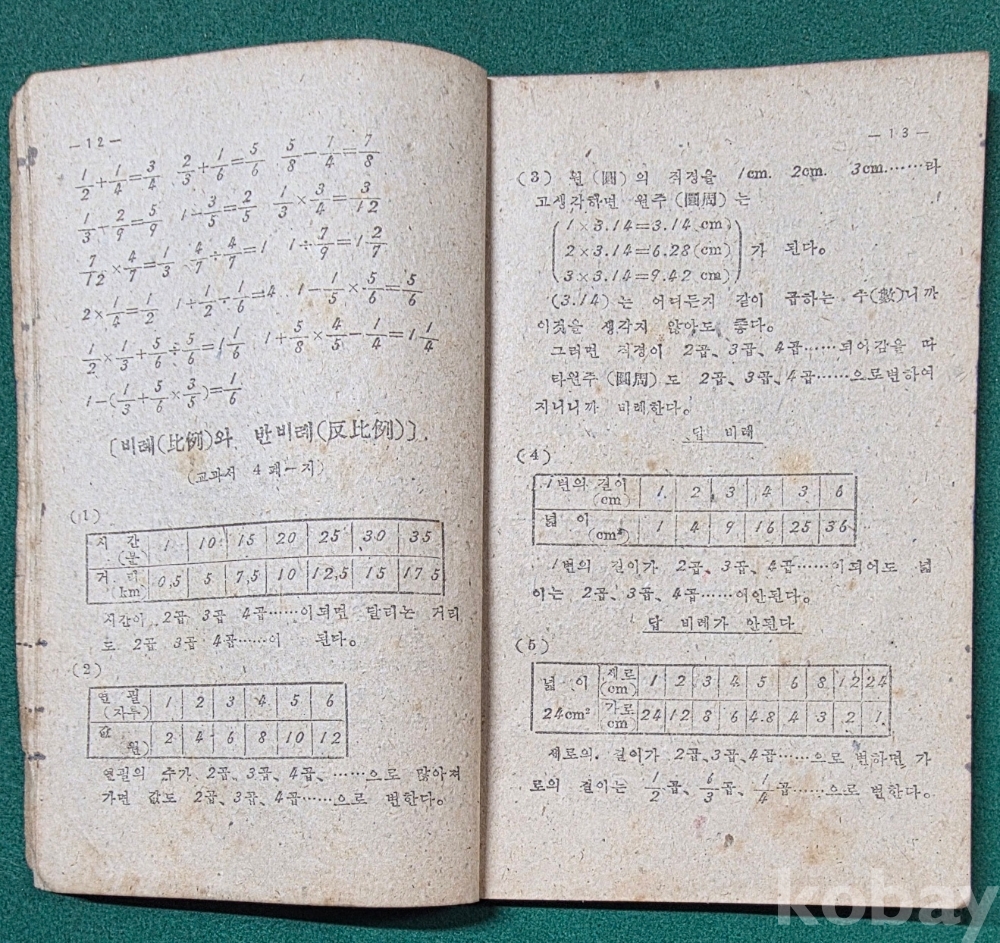 —12—
1/2+1/4=3/4 2/3+1/6=5/6 5/8-7/4=7/8
1/3+2/9=5/9 1-3/5=2/5 1/3×3/4=3/12
7/12×4/7=1/3 4/7÷4/7=1 1÷7/9=1 2/7
2×1/4=1/2 1÷1/2÷1/6=4 1-1/5×5/6=5/6
1/2×1/3+5/6÷5/6=1 1/6 1+5/8×4/5-1/4=1 1/4
1-(1/3+5/6×3/5)=1/6
[비례(比例)와 반비례(反比例)].
(교과서 4페—지)
(1)
시 간(분) 1 10 15 20 25 30 35
거 리(km) 0,5 5 7,5 10 12,5 15 17 5
시간이 2곱 3곱 4곱……이되면 달리는 거리
도 2곱 3곱 4곱……이 된다。
(2)
연 필(자루) 1 2 3 4 5 6
값 원) 2 4 6 8 10 12
연필의 수가 2곱、3곱、4곱、……으로 많아져
가면 값도 2곱、3곱、4곱……으로 변한다。
—13—
(3) 원(圓)의 직경을 1cm. 2cm. 3cm.……라
고생각하면 원주(圓周)는
1×3.14=3.14 cm)
2×3.14=6.28(cm) 가 된다。
3×3.14=9.42 cm)
(3.14)는 어디든지 같이 곱하는 수(數)니까
이것을 생각지 않아도 좋다。
그러면 직경이 2곱、3곱、4곱……되어감을 따
타원주(圓周)도 2곱、3곱、4곱……으로변하여
지니니까 비례한다。
답 비례
(4)
1변의 길이(cm) 1 2 3 4 3 6
넓 이(cm²) 1 4 9 16 25 36
1변의 길이가 2곱、3곱、4곱……이되어도 넓
이는 2곱、3곱、4곱……이안된다。
답 비례가 안된다
(5)
넓 이 세로(cm) 1 2 3 4 5 6 8 12 24
24cm² 가로cm 24 12 8 6 4.8 4 3 2 1
세로의 길이가 2곱、3곱、4곱……으로 변하면 가
로의 길이는 1/2곱、6/3곱、1/4곱……으로 변한다。
kobay